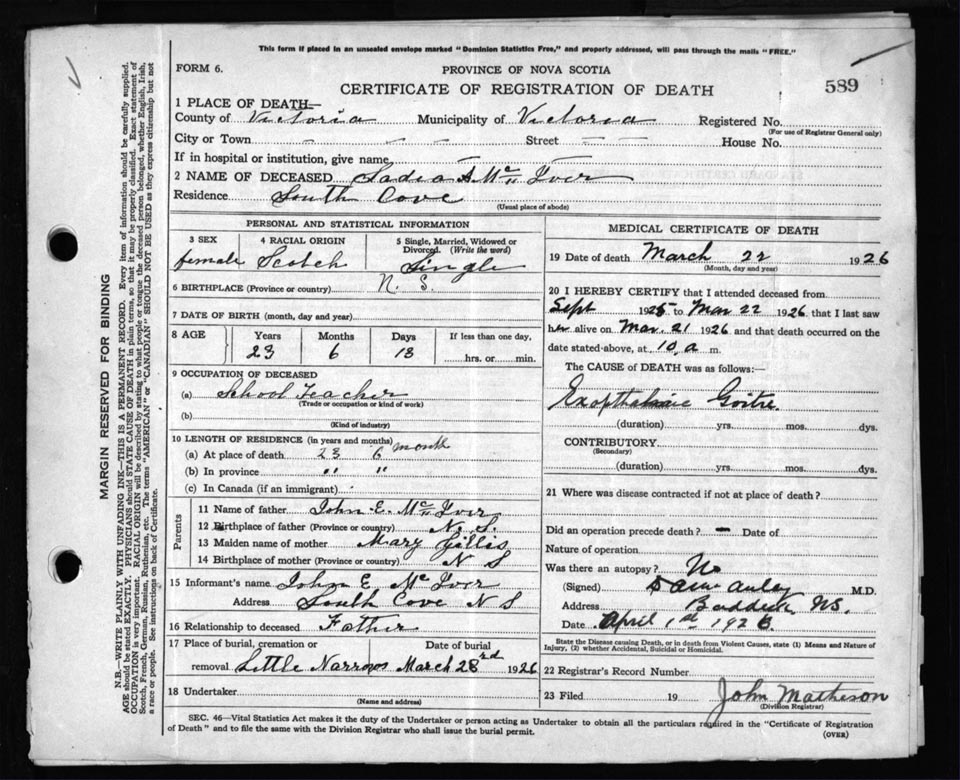 This form if placed in an unsealed envelope marked "Dominion Statistics Free," and property addressed, will pass through the mails "FREE."
FORM 6.
PROVINCE OF NOVA SCOTIA
CERTIFICATE OF REGISTRATION OF DEATH
589
1 PLACE OF DEATH—
County of Victoria Municipality of Victoria Registered No.
(For use of Registrar General only)
City or Town - - - Street - - House No.
If in hospital or institution, give name
2 NAME OF DECEASED Sadie A Mc Iver
Residence South Cove
(Usual place of abode)
PERSONAL AND STATISTICAL INFORMATION
3 SEX female
4 RACIAL ORIGIN Scotch
5 Single, Married, Widowed or Divorced. (Write the word) Single
6 BIRTHPLACE (Province or country) N. S.
7 DATE OF BIRTH (month, day and year)
8 AGE Years Months Days If less than one day,
23 6 13 hrs. or min.
9 OCCUPATION OF DECEASED
(a) School Teacher
(Trade or occupation or kind of work)
(b)
(Kind of industry)
10 LENGTH OF RESIDENCE (in years and months)
(a) At place of death 23 6 month
(b) In province " "
(c) In Canada (if an immigrant)
Parents
11 Name of father John E. Mc Iver
12 Birthplace of father (Province or country) N. S.
13 Maiden name of mother Mary Gillis
14 Birthplace of mother (Province or country) N S
15 Informant's name John E Mc Iver
Address South Cove N S
16 Relationship to deceased Father
17 Place of burial, cremation or removal Little Narrows Date of burial March 28rd 1926
18 Undertaker
(Name and address)
MEDICAL CERTIFICATE OF DEATH
19 Date of death March 22 1926
(Month, day and year)
20 I HEREBY CERTIFY that I attended deceased from
Sept 1925 to Mar 22 1926 that I last saw
her alive on Mar. 21 1926 and that death occurred on the
date stated above, at 10, a m.
The CAUSE of DEATH was as follows:—
Exopthalmic Goitre.
(duration) yrs. mos. dys.
CONTRIBUTORY
(Secondary)
(duration) yrs. mos. dys.
21 Where was disease contracted if not at place of death?
Did an operation precede death? — Date of
Nature of operation
Was there an autopsy? No
(Signed) M.D.
Address Baddeck NS.
Date April 1st 1926
State the Disease causing Death, or in death from Violent Causes, state (1) Means and Nature of Injury, (2) whether Accidental, Suicidal or Homicidal.
22 Registrar's Record Number
23 Filed 19 John Matheson
(Division Registrar)
SEC. 46—Vital Statistics Act makes it the duty of the Undertaker or person acting as Undertaker to obtain all the particulars required in the "Certificate of Registration
of Death" and to file the same with the Division Registrar who shall issue the burial permit.
(OVER)
MARGIN RESERVED FOR BINDING
N.B.—WRITE PLAINLY WITH UNFADING INK—THIS IS A PERMANENT RECORD. Every item of information should be carefully supplied.
AGE should be stated EXACTLY. PHYSICIANS should STATE CAUSE OF DEATH in plain terms, so that it may be properly classified. Exact statement of
OCCUPATION is very important. RACIAL ORIGIN will be described by stating to what people or tongue the deceased person belonged, whether English, Irish,
Scotch, French, German, Russian, Ruthenian, etc. The terms "AMERICAN" or "CANADIAN" SHOULD NOT BE USED as they express citizenship but not
a race or people. See instructions on back of Certificate.